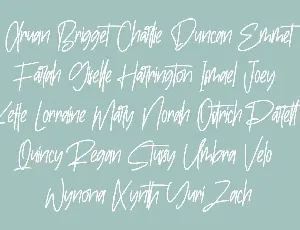 Arvan Brigget Charllie Duncan Emmet
Farrah Giselle Harrington Ismael Joey
Lorraine Marry Norah Ostrich
Quincy Regan Stusy Umbra Velo
Wynona Xyrith Yuri Zach